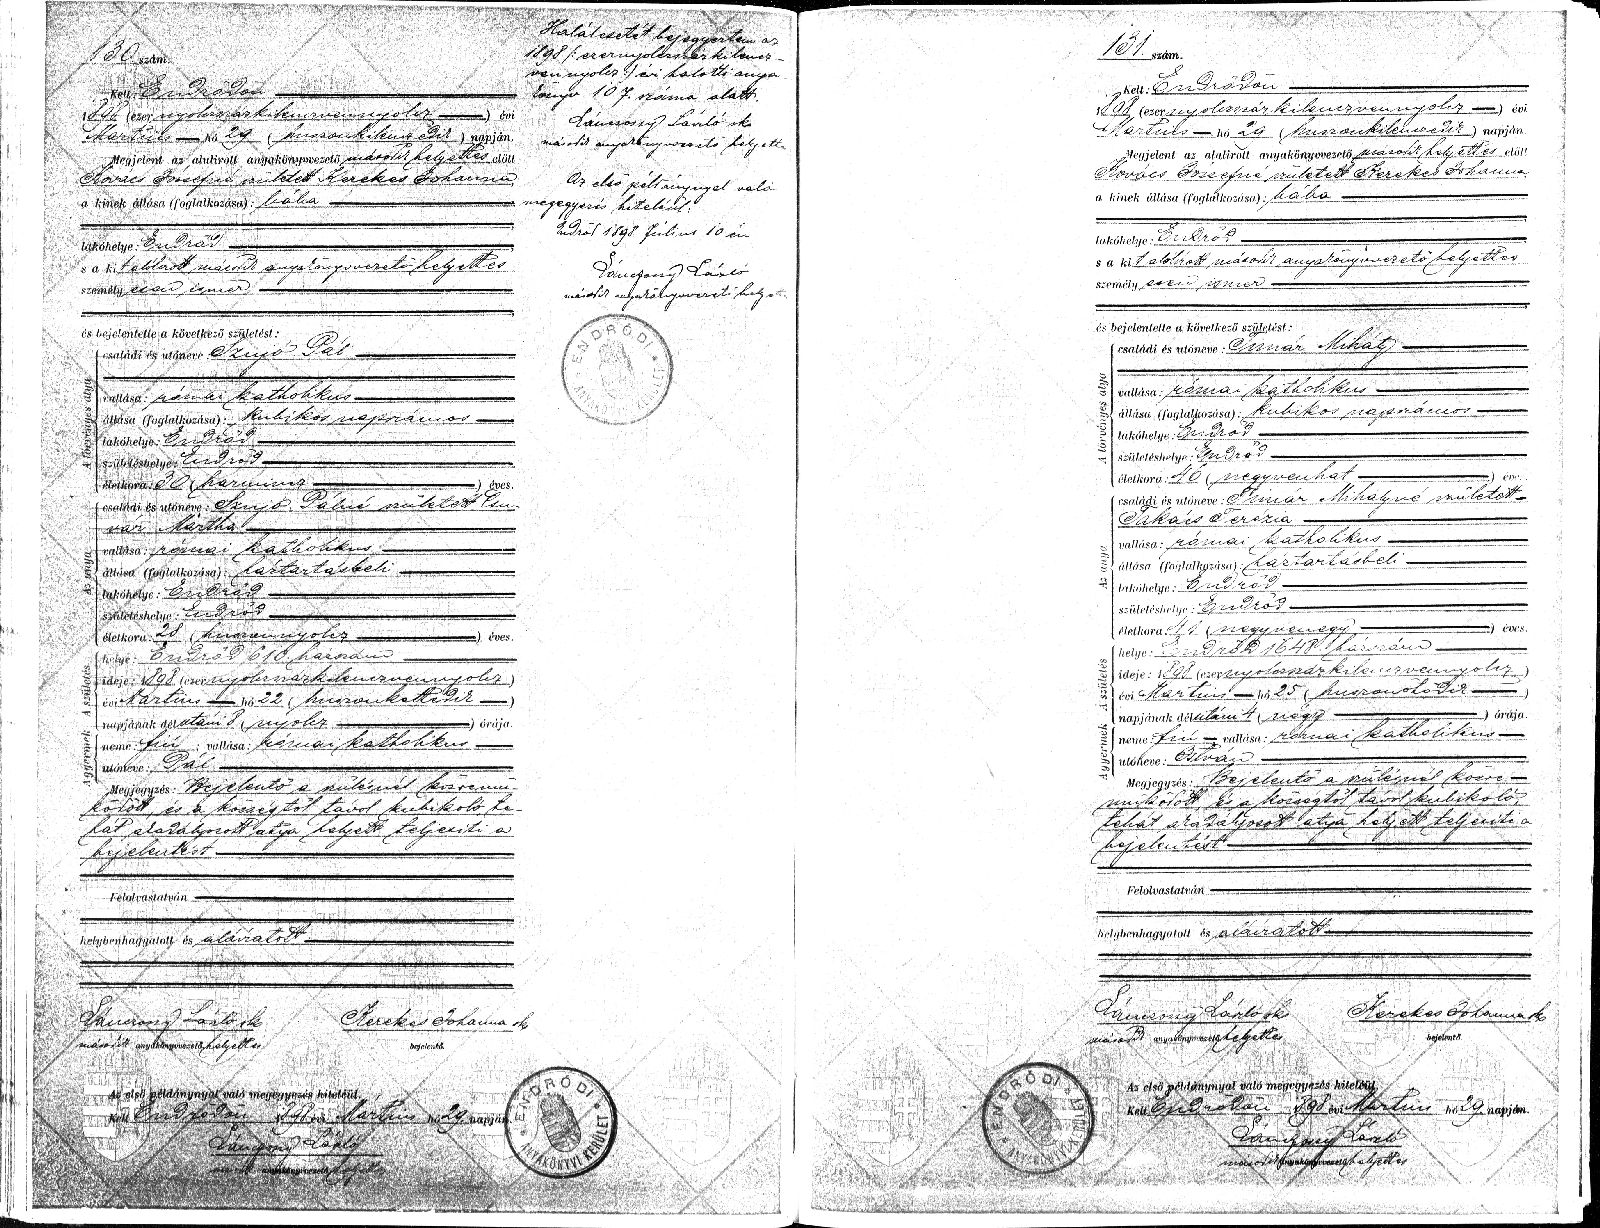 130 szám.
Kelt: Endrődön
1898 (ezernyolczszázkilenczvennyolcz) évi
Martius hó 29 (huszonkilenczedik) napján.
Megjelent az alulirott anyakönyvvezető második helyettes előtt
Kovács Józsefné született Kerekes Johanna
a kinek állása (foglalkozása): bába
lakóhelye: Endrőd
s a kit alólirott második anyakönyvvezető helyettes
személyesen ismer
és bejelentette a következő születést:
A törvényes atya
családi és utóneve Szujó Pál
vallása: római katholikus
állása (foglalkozása): kubikos napszámos
lakóhelye: Endrőd
születéshelye: Endrőd
életkora: 30 (harmincz) éves.
Az anya
családi és utóneve: Szujó Pálné született Csu-
vár Mártha
vallása: római katholikus
állása (foglalkozása): háztartásbeli
lakóhelye: Endrőd
születéshelye: Endrőd
életkora: 28 (huszonnyolcz) éves.
A gyermek A születés
helye: Endrőd 610. házszám
ideje: 1898 (ezernyolczszázkilenczvennyolcz)
évi Martius hó 22 (huszonkettedik)
napjának délutáni 8 (nyolcz) órája.
neme: fiú; vallása: római katholikus
utóneve: Pál
Megjegyzés: Bejelentő a szülésnél közremü-
ködött, és a községtől távol kubikoló te-
hát akadályozott atya helyett teljesiti a
bejelentést
Felolvastatván
helybenhagyatott és aláiratott
Lánczony László sk
második anyakönyvvezető helyettes
Kerekes Johanna sk
bejelentő.
Az első példánynyal való megegyezés hiteléül.
Kelt Endrődön 1898 évi Martius hó 29 napján.
Lánczony László
második anyakönyvvezető helyettes
ENDRŐDI * ANYAKÖNYVI KERÜLET *
Halálesetét bejegyeztem az
1898 (:ezernyolczszázkilencz-
vennyolcz:) évi halotti anya
könyv 107. száma alatt.
Lánczony László sk
második anyakönyvvezető helyett
Az első példánynyal való
megegyezés hiteléül:
Endrőd 1898 Julius 10 én
Lánczony László
második anyakönyvvezető helyet
ENDRŐDI * ANYAKÖNYVI KERÜLET *
131 szám.
Kelt: Endrődön
1898 (ezernyolczszázkilenczvennyolcz) évi
Martius hó 29 (huszonkilenczedik) napján.
Megjelent az alulirott anyakönyvvezető második helyettes előtt
Kovács Józsefné született Kerekes Johanna
a kinek állása (foglalkozása): bába
lakóhelye: Endrőd
s a kit alólirott második anyakönyvvezető helyettes
személyesen ismer
és bejelentette a következő születést:
A törvényes atya
családi és utóneve: Tímár Mihály
vallása: római katholikus
állása (foglalkozása): kubikos napszámos
lakóhelye: Endrőd
születéshelye: Endrőd
életkora: 46 (negyvenhat) éves
Az anya
családi és utóneve: Tímár Mihályné született
Takács Terézia
vallása: római katholikus
állása (foglalkozása): háztartásbeli
lakóhelye: Endrőd
születéshelye: Endrőd
életkora: 41 (negyvenegy) éves.
A gyermek A születés
helye: Endrőd 1648 házszám
ideje: 1898 (ezernyolczszázkilenczvennyolcz)
évi Martius hó 25 (huszonötödik)
napjának délutáni 4 (négy) órája.
neme: fiú vallása: római katholikus
utóneve: István
Megjegyzés: Bejelentő a szülésnél közre-
müködött, és a községtől távol kubikoló,
tehát akadályozott atya helyett teljesiti a
bejelentést
Felolvastatván
helybenhagyatott és aláiratott
Lánczony László sk
második anyakönyvvezető helyettes
Kerekes Johanna sk
bejelentő.
Az első példánynyal való megegyezés hiteléül.
Kelt Endrődön 1898 évi Martius hó 29 napján.
Lánczony László
második anyakönyvvezető helyettes
ENDRŐDI * ANYAKÖNYVI KERÜLET *